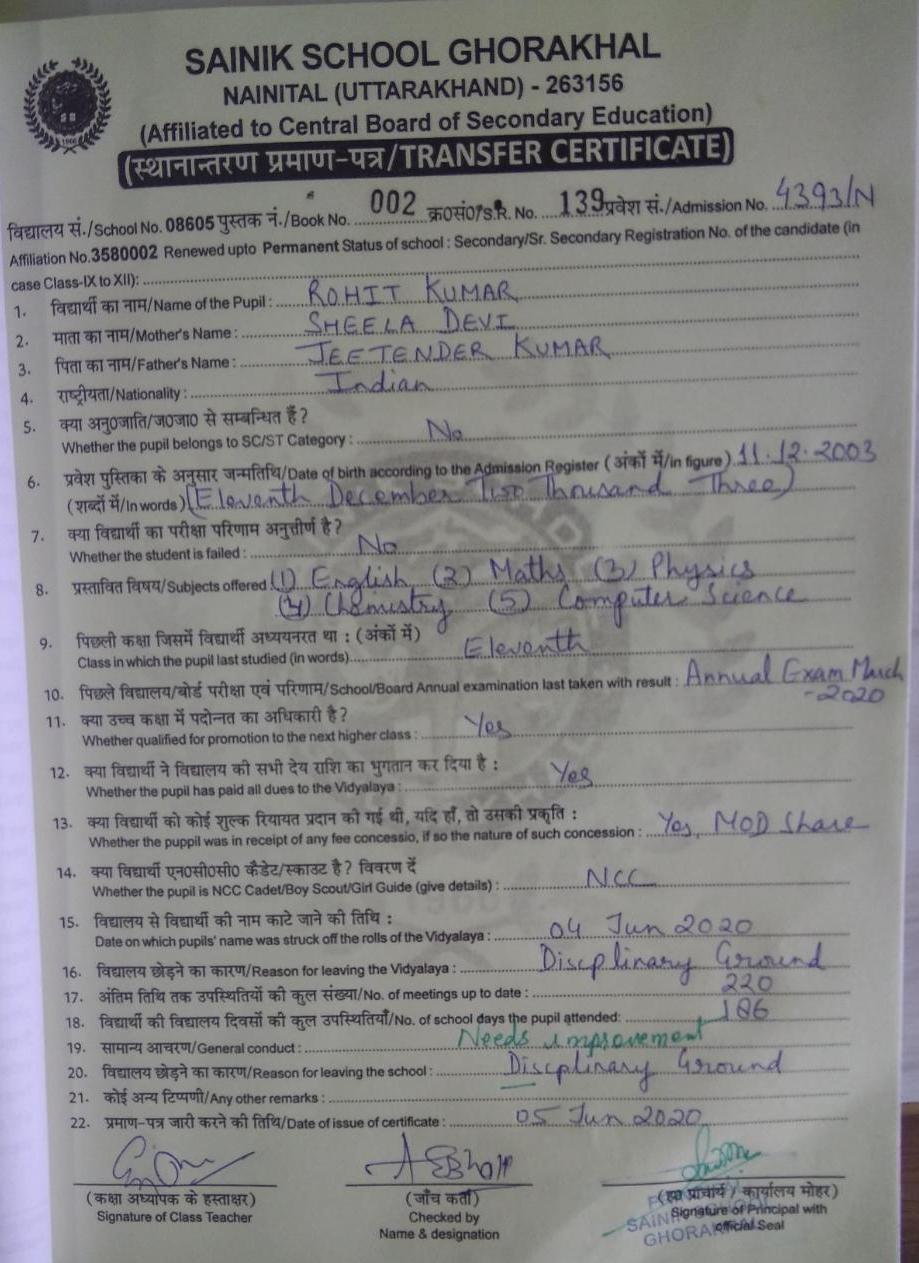 SAINIK SCHOOL GHORAKHAL
NAINITAL (UTTARAKHAND) - 263156
(Affiliated to Central Board of Secondary Education)
(स्थानान्तरण प्रमाण-पत्र/TRANSFER CERTIFICATE)
विद्यालय सं./School No. 08605 पुस्तक नं./Book No. 002 क्र0सं0/S.R. No. 139 प्रवेश सं./Admission No. 4393/N
Affiliation No.3580002 Renewed upto Permanent Status of school : Secondary/Sr. Secondary Registration No. of the candidate (in
case Class-IX to XII):
1. विद्यार्थी का नाम/Name of the Pupil : ROHIT KUMAR
2. माता का नाम/Mother's Name : SHEELA DEVI
3. पिता का नाम/Father's Name : JEETENDER KUMAR
4. राष्ट्रीयता/Nationality : Indian
5. क्या अनु0जाति/ज0जा0 से सम्बन्धित हैं?
Whether the pupil belongs to SC/ST Category : No
6. प्रवेश पुस्तिका के अनुसार जन्मतिथि/Date of birth according to the Admission Register (अंकों में/in figure) 11.12.2003
(शब्दों में/In words) (Eleventh December Two Thousand Three)
7. क्या विद्यार्थी का परीक्षा परिणाम अनुत्तीर्ण है?
Whether the student is failed : No
8. प्रस्तावित विषय/Subjects offered (1) English (2) Maths (3) Physics
(4) Chemistry (5) Computer Science
9. पिछली कक्षा जिसमें विद्यार्थी अध्ययनरत था : (अंकों में)
Class in which the pupil last studied (in words) Eleventh
10. पिछले विद्यालय/बोर्ड परीक्षा एवं परिणाम/School/Board Annual examination last taken with result : Annual Exam March
-2020
11. क्या उच्च कक्षा में पदोन्नत का अधिकारी है?
Whether qualified for promotion to the next higher class : Yes
12. क्या विद्यार्थी ने विद्यालय की सभी देय राशि का भुगतान कर दिया है :
Whether the pupil has paid all dues to the Vidyalaya : Yes
13. क्या विद्यार्थी को कोई शुल्क रियायत प्रदान की गई थी, यदि हाँ, तो उसकी प्रकृति :
Whether the puppil was in receipt of any fee concessio, if so the nature of such concession : Yes, MOD Share
14. क्या विद्यार्थी एन0सी0सी0 कैडेट/स्काउट है? विवरण दें
Whether the pupil is NCC Cadet/Boy Scout/Girl Guide (give details) : NCC
15. विद्यालय से विद्यार्थी की नाम काटे जाने की तिथि :
Date on which pupils' name was struck off the rolls of the Vidyalaya : 04 Jun 2020
16. विद्यालय छोड़ने का कारण/Reason for leaving the Vidyalaya : Discplinary Ground
17. अंतिम तिथि तक उपस्थितियों की कुल संख्या/No. of meetings up to date : 220
18. विद्यार्थी की विद्यालय दिवसों की कुल उपस्थितियाँ/No. of school days the pupil attended: 186
19. सामान्य आचरण/General conduct : Needs improvement
20. विद्यालय छोड़ने का कारण/Reason for leaving the school : Discplinary Ground
21. कोई अन्य टिप्पणी/Any other remarks :
22. प्रमाण-पत्र जारी करने की तिथि/Date of issue of certificate : 05 Jun 2020
(कक्षा अध्यापक के हस्ताक्षर) (जाँच कर्ता) प्राचार्य / कार्यालय मोहर)
Signature of Class Teacher Checked by Signature of Principal with
Name & designation official Seal